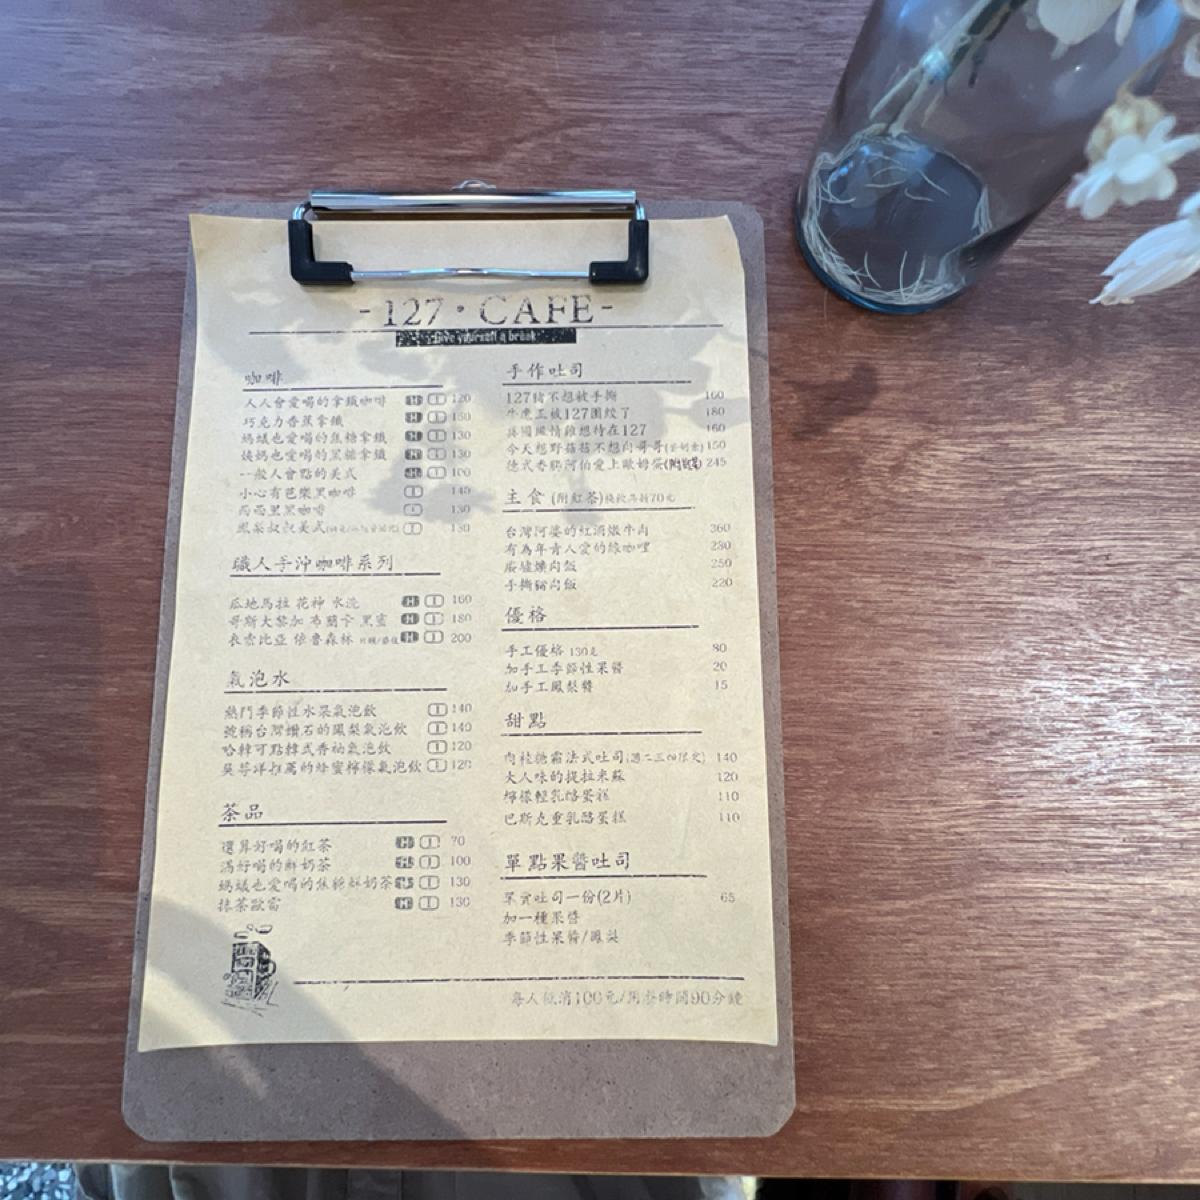 -127·CAFE-
Give yourself a break
咖啡
人人會愛喝的拿鐵咖啡 H I 120
巧克力香蕉拿鐵 H I 150
螞蟻也愛喝的焦糖拿鐵 H I 130
姨媽也愛喝的黑糖拿鐵 H I 130
一般人會點的美式 H I 100
小心有芭樂黑咖啡 I 140
西西里黑咖啡 I 130
鳳梨叔叔美式 I 130
職人手沖咖啡系列
瓜地馬拉 花神 水洗 H I 160
哥斯大黎加 布蘭卡 黑蜜 H I 180
衣索比亞 依魯森林 H I 200
氣泡水
熱門季節性水果氣泡飲 I 140
號稱台灣鑽石的鳳梨氣泡飲 I 140
哈韓可點韓式香柚氣泡飲 I 120
吳哥洋推薦的蜂蜜檸檬氣泡飲 I 120
茶品
還算好喝的紅茶 H I 70
滿好喝的鮮奶茶 H I 100
螞蟻也愛喝的焦糖鮮奶茶 H I 130
抹茶歐蕾 H I 130
手作吐司
127豬不想被手撕 160
牛魔王被127圍絞了 180
英國風情雞想待在127 160
今天想野菇菇不想肉哥哥 150
德式香腸阿伯愛上歐姆蛋 245
主食 (附紅茶)換飲品折70元
台灣阿婆的紅酒燉牛肉 360
有為年青人愛的綠咖哩 280
廢墟燒肉飯 250
手撕豬肉飯 220
優格
手工優格 130克 80
加手工季節性果醬 20
加手工鳳梨醬 15
甜點
肉桂糖霜法式吐司 140
大人味的提拉米蘇 120
檸檬輕乳酪蛋糕 110
巴斯克重乳酪蛋糕 110
單點果醬吐司
單賣吐司一份(2片) 65
加一種果醬
季節性果醬/鳳梨
每人低消100元/用餐時間90分鐘